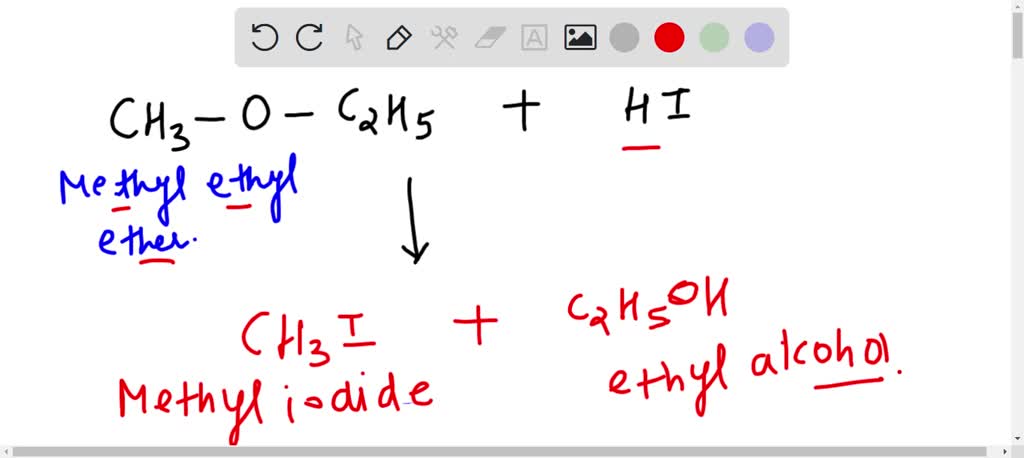 CH₃ – O – C₂H₅ + HI
Methyl ethyl
ether.
CH₃I + C₂H₅OH
Methyl iodide ethyl alcohol.